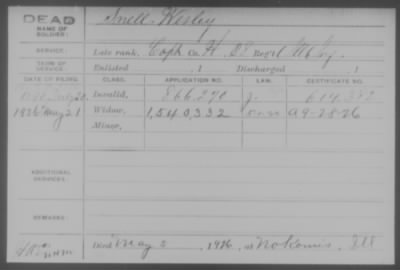 DEAD
NAME OF SOLDIER: Snell Wesley
SERVICE: Late rank, Corpl Co. H, Reg't
TERM OF SERVICE: Enlisted , 1 Discharged , 1
DATE OF FILING. CLASS. APPLICATION NO. LAW. CERTIFICATE NO.
Invalid, 866,270
1926 May 21 Widow, 1,540,332 A 9-28-26
Minor,
ADDITIONAL SERVICES:
REMARKS:
Died May 2, 1926, at Nokomis, Ill